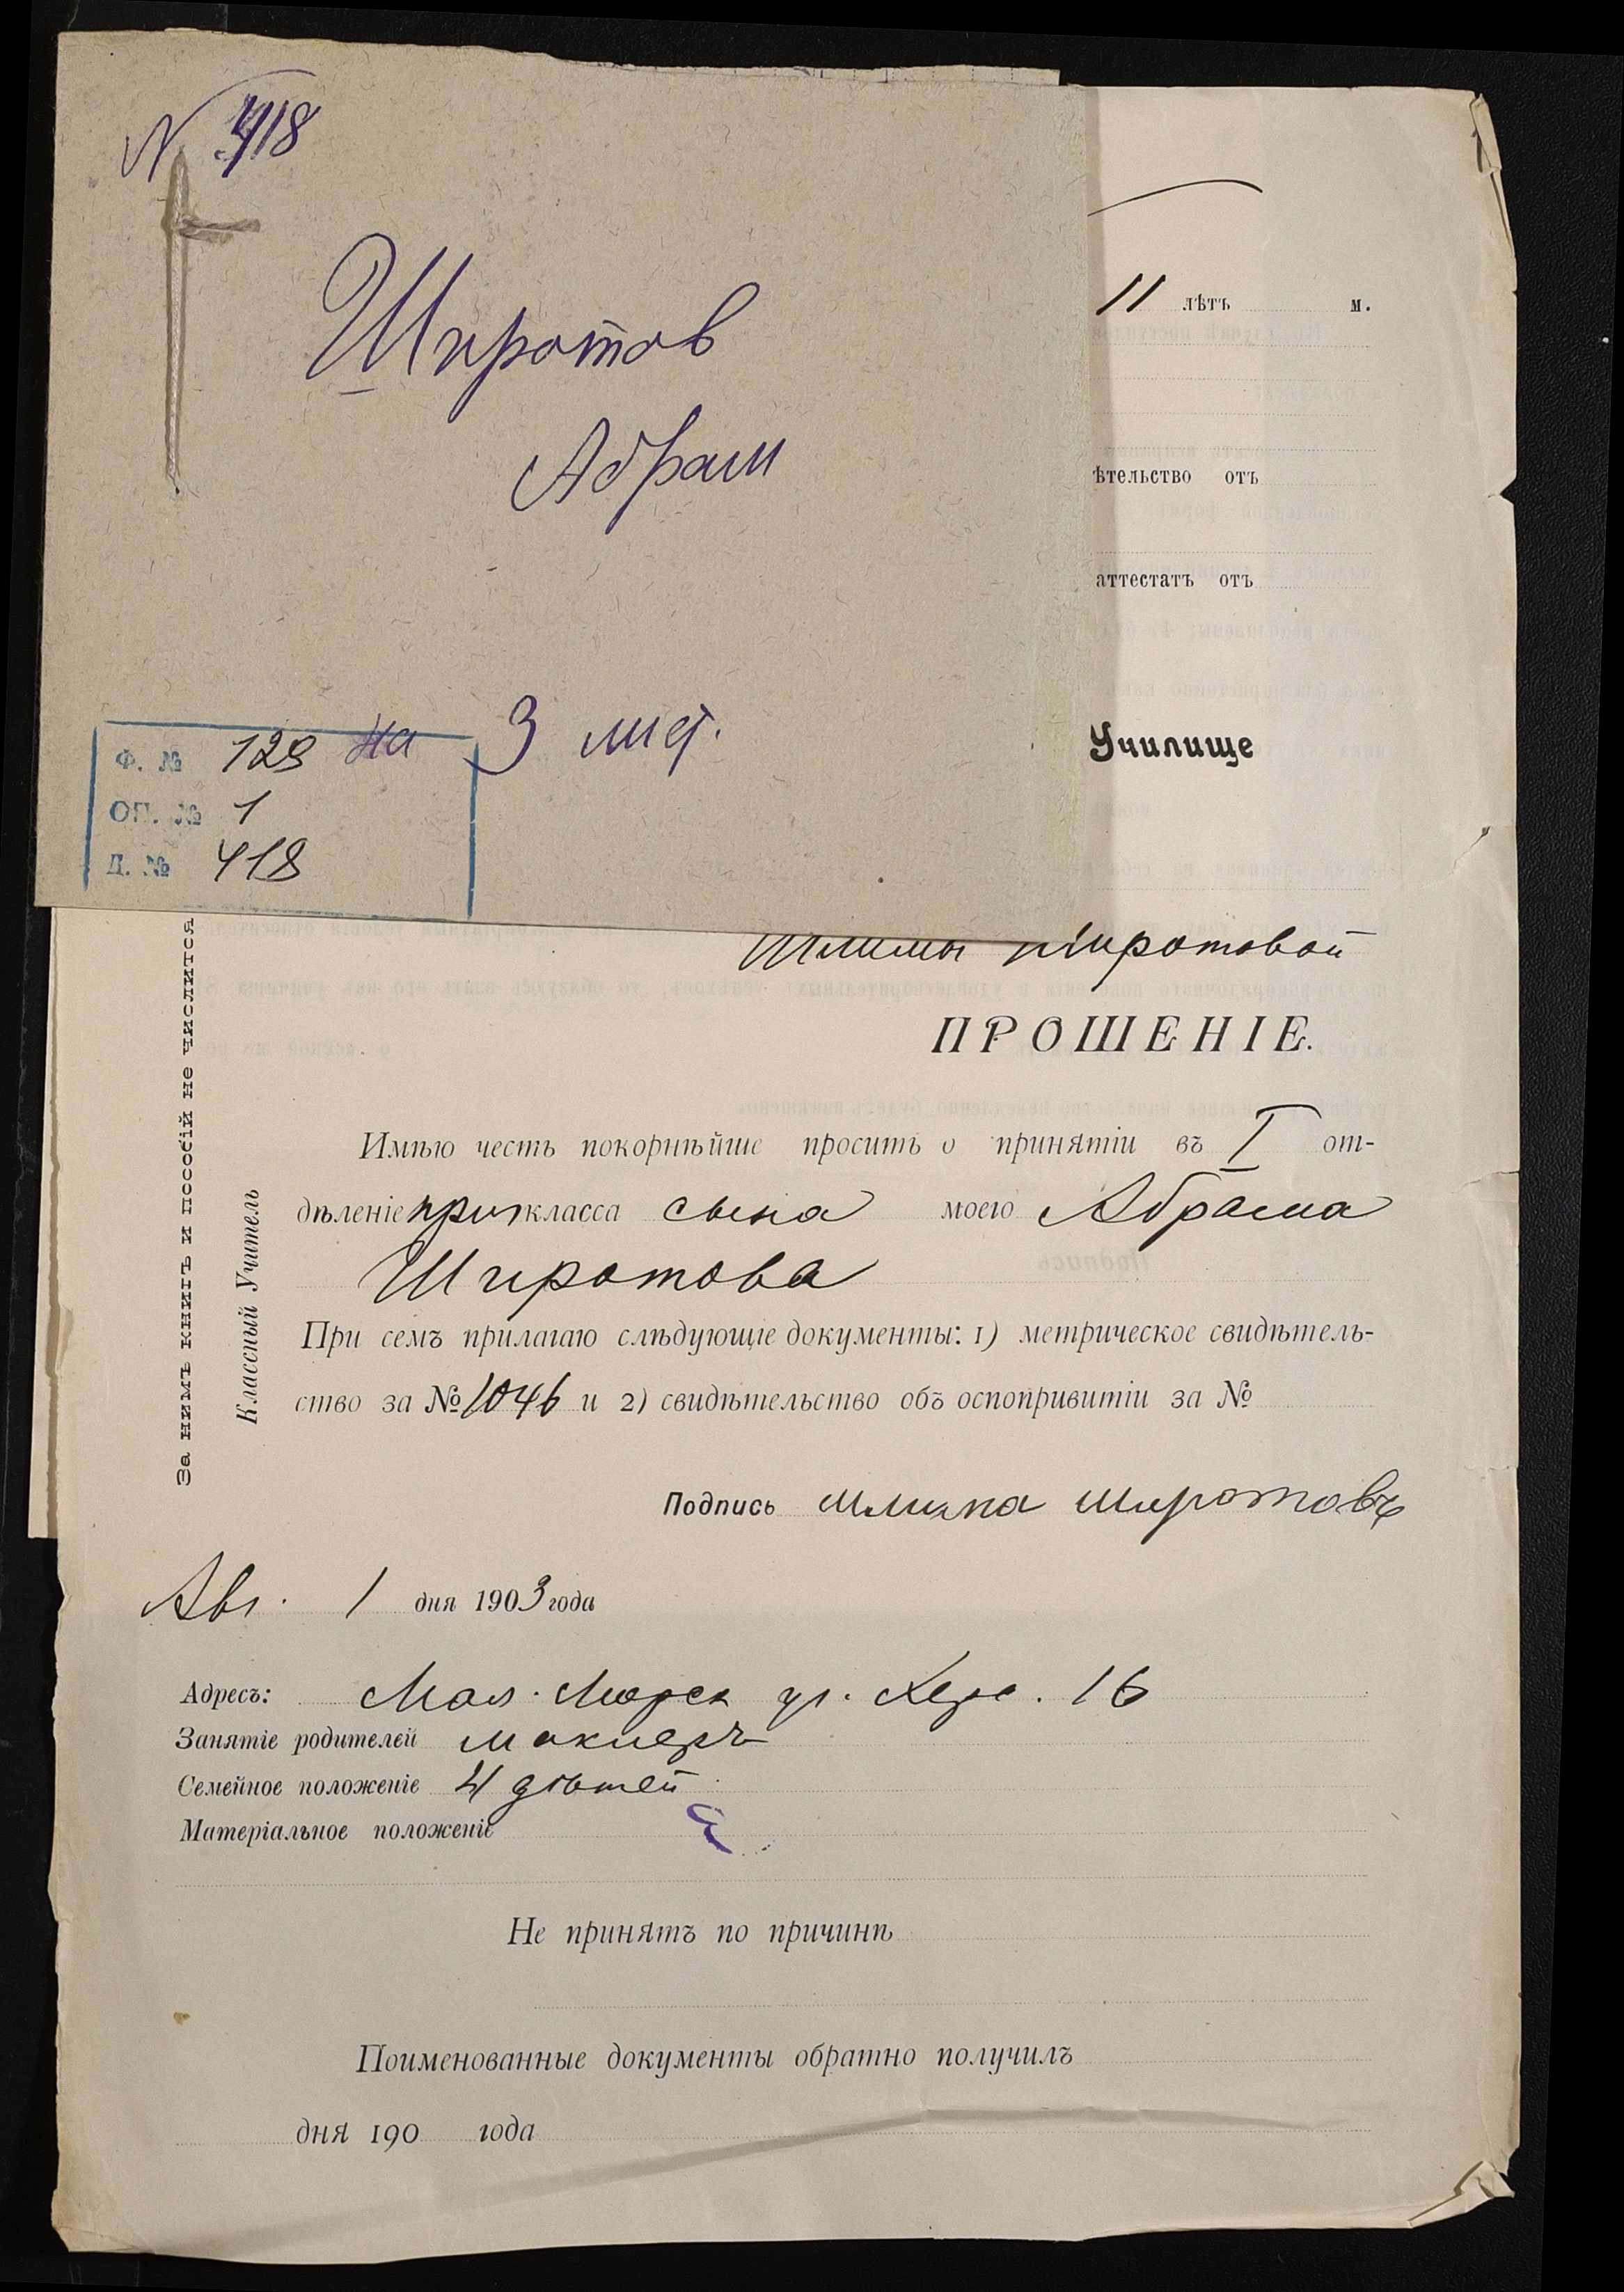 N 418
Широтов
Абрам
на 3 лист.
Ф. № 129
ОП. № 1
Д. № 418
11 лѣтъ м.
ѣтельство отъ
аттестатъ отъ
Училище
Широтовой
ПРОШЕНІЕ.
Имѣю честь покорнѣйше просить о принятіи въ I от-
дѣленіе приг класса сына моего Абрама
Широтова
При семъ прилагаю слѣдующіе документы: 1) метрическое свидѣтель-
ство за № 1046 и 2) свидѣтельство объ оспопривитіи за №
Подпись Широтовъ
Авг. 1 дня 1903 года
Адресъ: Мал. Морск ул. Херс. 16
Занятіе родителей маклеръ
Семейное положеніе 4 дѣтей
Матеріальное положеніе
Не принятъ по причинѣ
Поименованные документы обратно получилъ
дня 190 года
За нимъ книгъ и пособій не числится
Классный Учитель